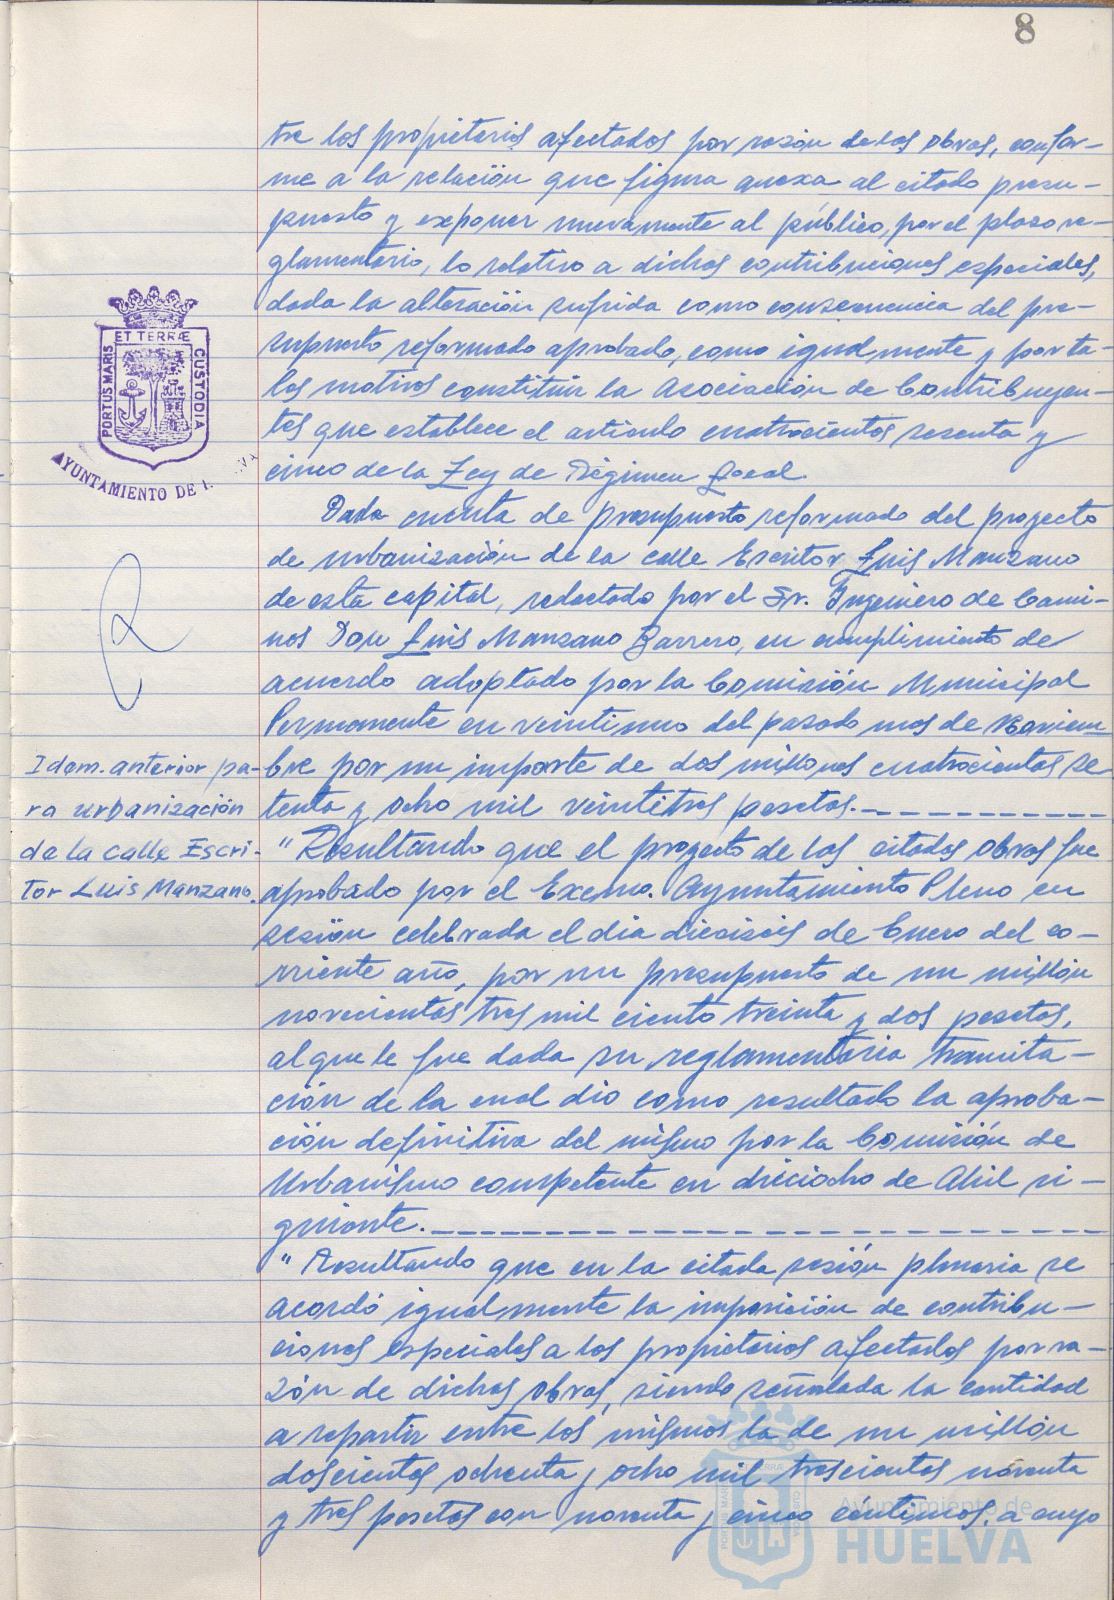 8
tre los propietarios afectados por razón de las obras, confor-
me a la relación que figura anexa al citado presu-
puesto y exponer nuevamente al público, por el plazo re-
glamentario, lo relativo a dichas contribuciones especiales,
dada la alteración sufrida como consecuencia del pre-
supuesto reformado aprobado, como igualmente y por ta-
les motivos constituir la Asociación de Contribuyen-
tes que establece el artículo cuatrocientos sesenta y
cinco de la Ley de Régimen Local.
ET TERRÆ
PORTUS MARIS
CUSTODIA
AYUNTAMIENTO DE
Dada cuenta de presupuesto reformado del proyecto
de urbanización de la calle Escritor Luis Manzano
de esta capital, redactado por el Sr. Ingeniero de Cami-
nos Don Luis Manzano Barrero, en cumplimiento de
acuerdo adoptado por la Comisión Municipal
Permanente en veintiuno del pasado mes de Noviem-
bre por un importe de dos millones cuatrocientas se-
tenta y ocho mil veintitres pesetas.----------
Idem. anterior pa-
ra urbanización
de la calle Escri-
tor Luis Manzano.
"Resultando que el proyecto de las citadas obras fue
aprobado por el Excmo. Ayuntamiento Pleno en
sesión celebrada el día dieciseis de Enero del co-
rriente año, por un presupuesto de un millón
novecientas tres mil ciento treinta y dos pesetas,
al que le fue dada su reglamentaria tramita-
ción de la cual dio como resultado la aproba-
ción definitiva del mismo por la Comisión de
Urbanismo competente en dieciocho de Abril si-
guiente.----------------------
"Resultando que en la citada sesión plenaria se
acordó igualmente la imposición de contribu-
ciones especiales a los propietarios afectados por ra-
zón de dichas obras, siendo señalada la cantidad
a repartir entre los mismos la de un millón
doscientas ochenta y ocho mil trescientas noventa
y tres pesetas con noventa y cinco céntimos, a cuyo
Ayuntamiento de
HUELVA